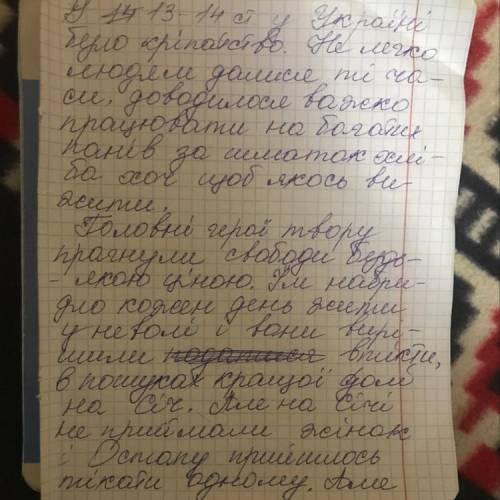 У 13-14 ст у Україні
було кріпатство. Не легко
людям далися ті ча-
си. доводилося важко
працювати на багатих
панів за шматок хлі-
ба хоч щоб якось ви-
жити.
Головні герої твору
прагнули свободи будь-
-якою ціною. Їм набри-
дло кожен день жити
у неволі і вони вирі-
шили податися втікти,
в пошуках кращої долі
на Січ. Але на Січі
не приймали жінок
і Остапу прийшлось
тікати одному. Але